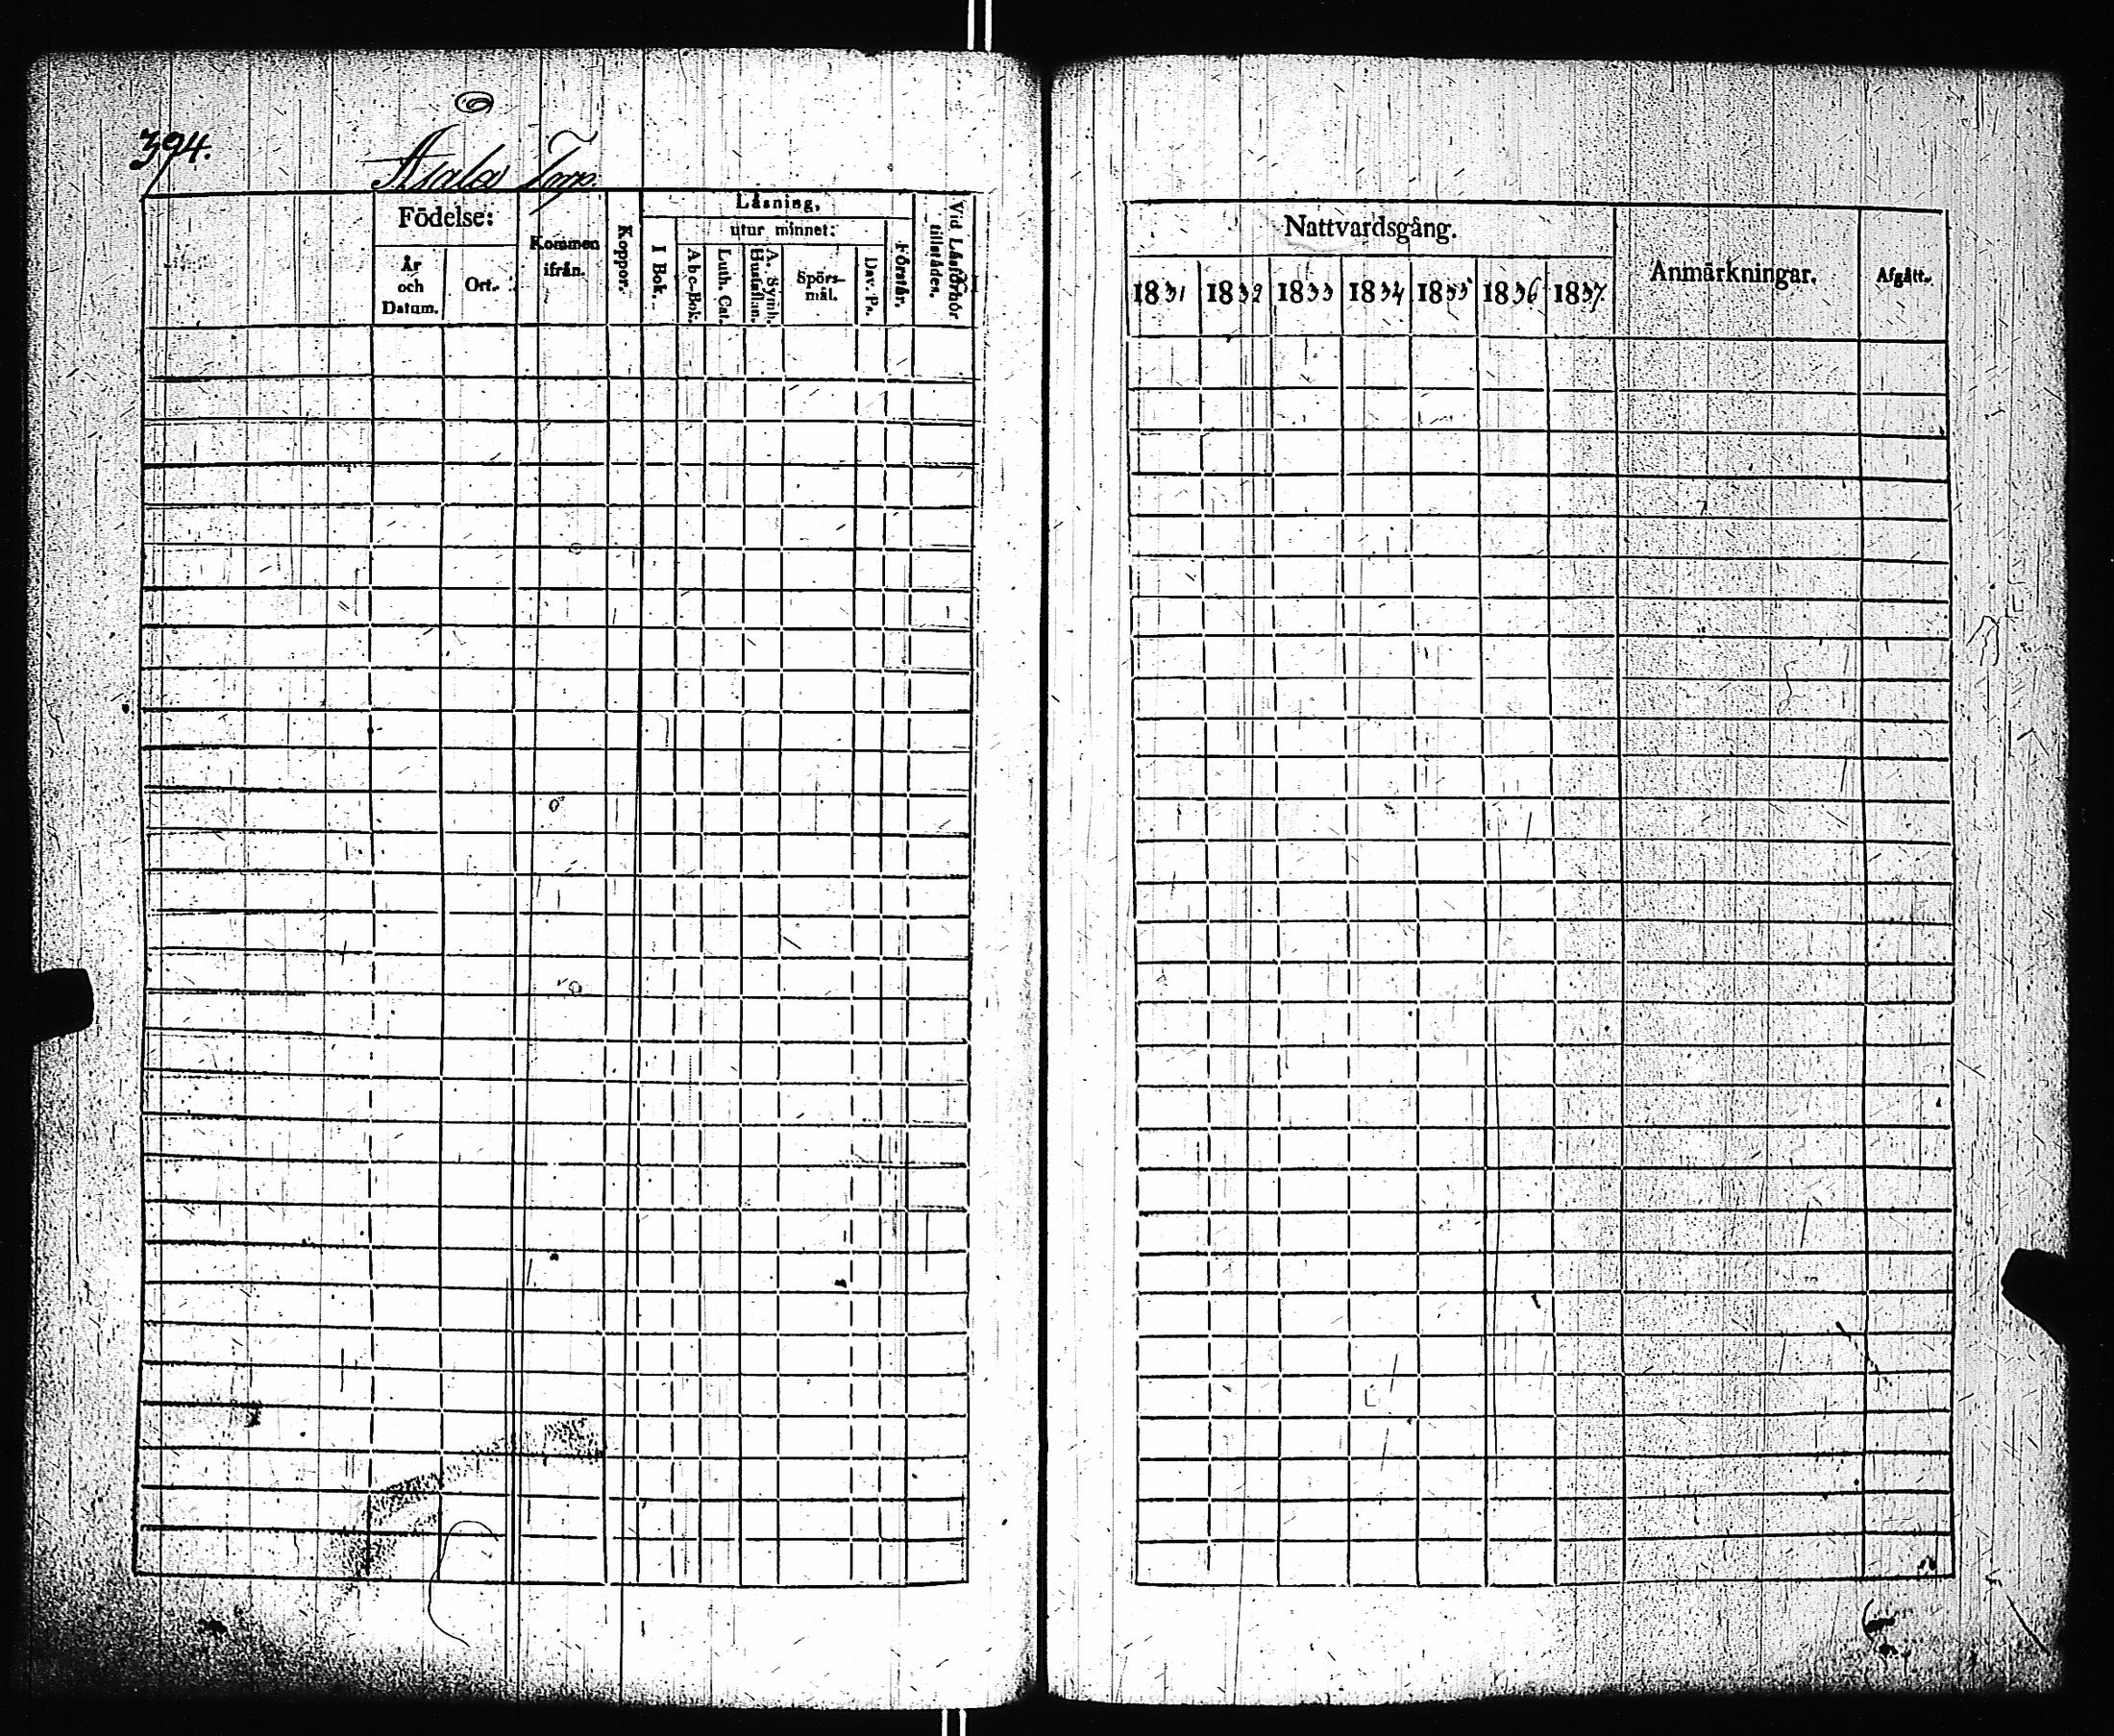 394.
Asala Torp.
Födelse:
År och Datum.
Ort.
Kommen ifrån.
Koppor.
Läsning,
I Bok.
utur minnet:
Abc-Bok.
Luth. Cat.
A. Symb. Hustaflan.
Spörs-
mål.
Dav. Ps.
Förstår.
Vid Läsförhör tillstädes.
Nattvardsgång.
1831 1832 1833 1834 1835 1836 1837.
Anmärkningar.
Afgått.